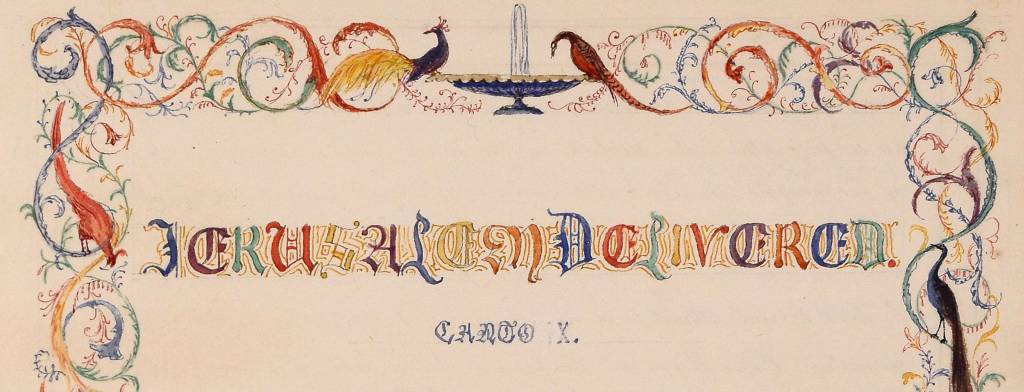 JERUSALEM DELIVERED.
CANTO IX.